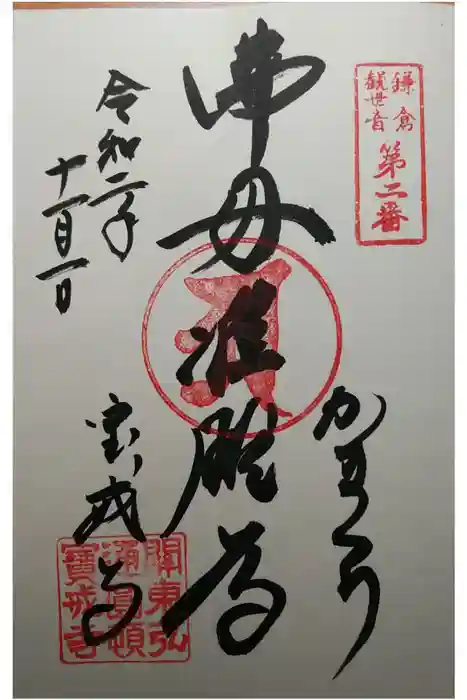 鎌倉
観世音
第二番
佛母准胝尊
かまくら
令和二年
十一月一日
宝戒寺
關東弘
通圓頓
寶戒寺